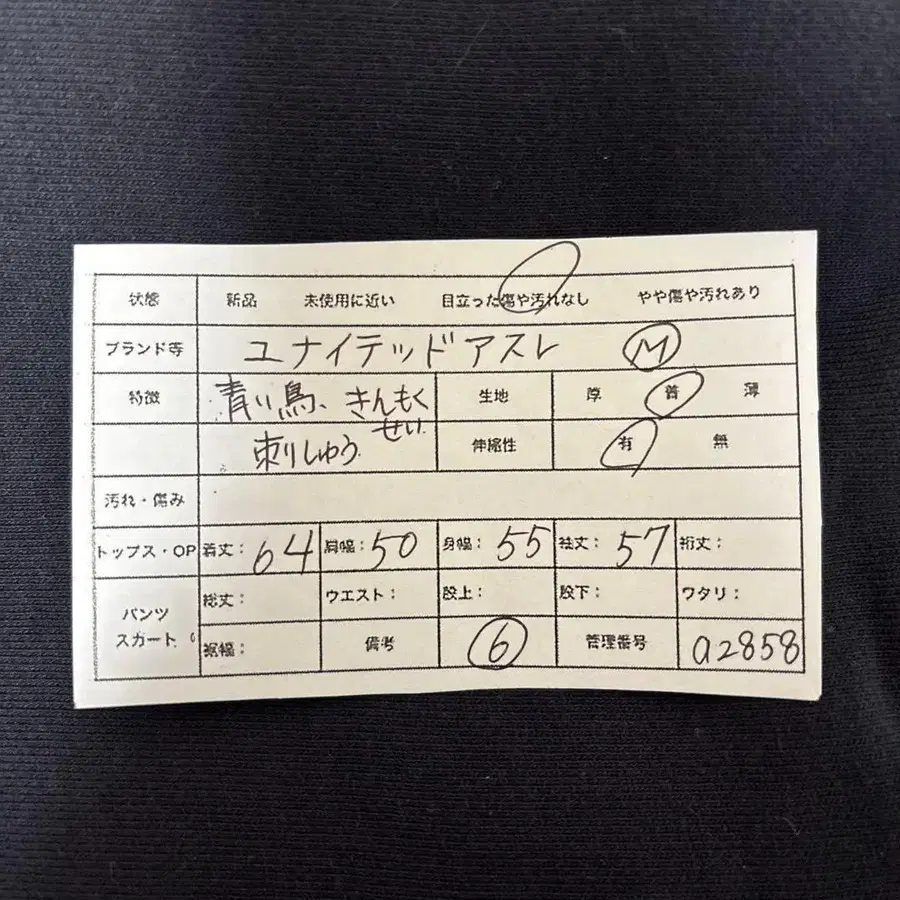 状態 新品 未使用に近い 目立った傷や汚れなし やや傷や汚れあり
ブランド等 ユナイテッドアスレ M
特徴 青い鳥、きんもく 生地 厚 普 薄
せい
刺しゅう 伸縮性 有 無
汚れ・傷み
トップス・OP 着丈:64 肩幅:50 身幅:55 袖丈:57 裄丈:
パンツ 総丈: ウエスト: 股上: 股下: ワタリ:
スカート 裾幅: 備考 6 管理番号 a2858